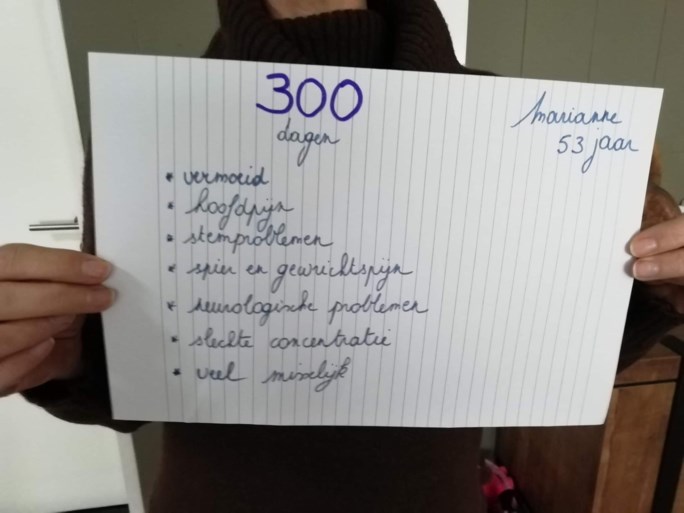 300
dagen
Marianne
53 jaar
* vermoeid
* hoofdpijn
* stemproblemen
* spier en gewrichtspijn
* neurologische problemen
* slechte concentratie
* veel misselijk